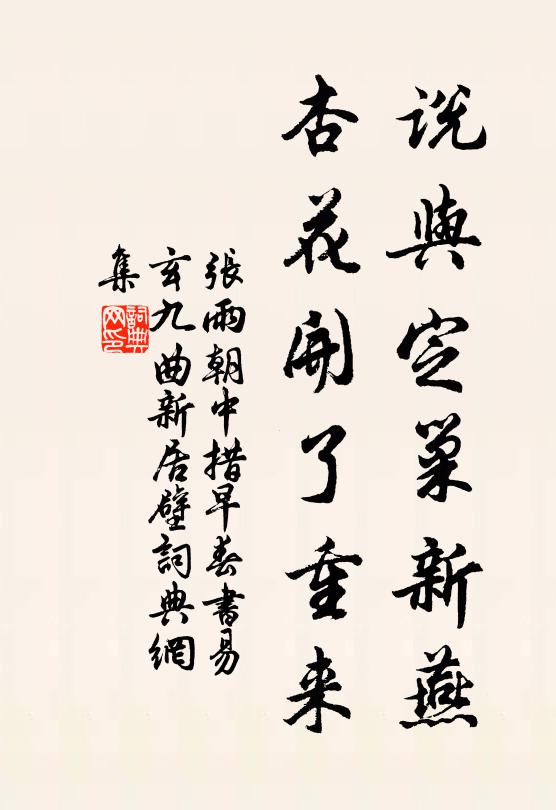 説與定巢新燕
杏花開了重来
張雨朝中措早春書易
玄九曲新居壁詞典網
集
詞典
网印